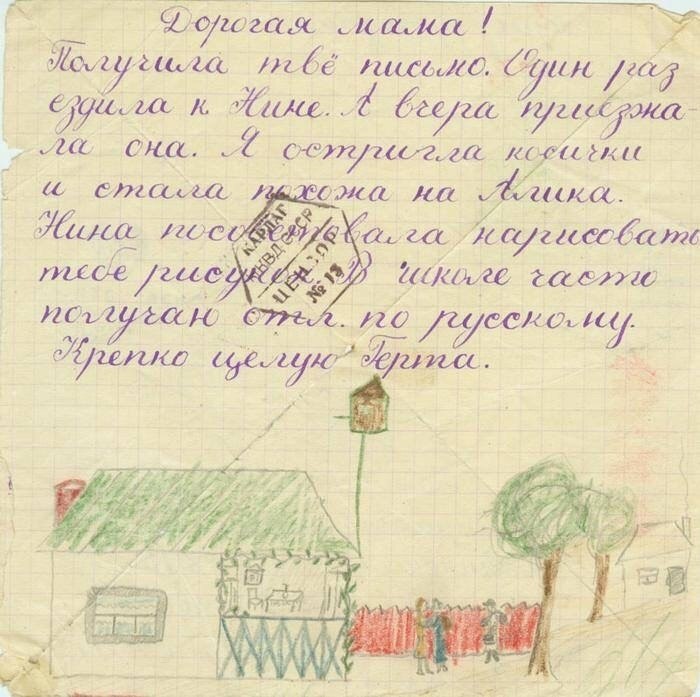 Дорогая мама!
Получила твё письмо. Один раз
ездила к Нине. А вчера приезжа
ла она. Я остригла косички
и стала похожа на Алика.
Нина посоветовала нарисовать
тебе рисунок. В школе часто
получаю отл. по русскому.
Крепко целую Герта.
КАРЛАГ
НКВД СССР
ЦЕНЗОР
№ 13